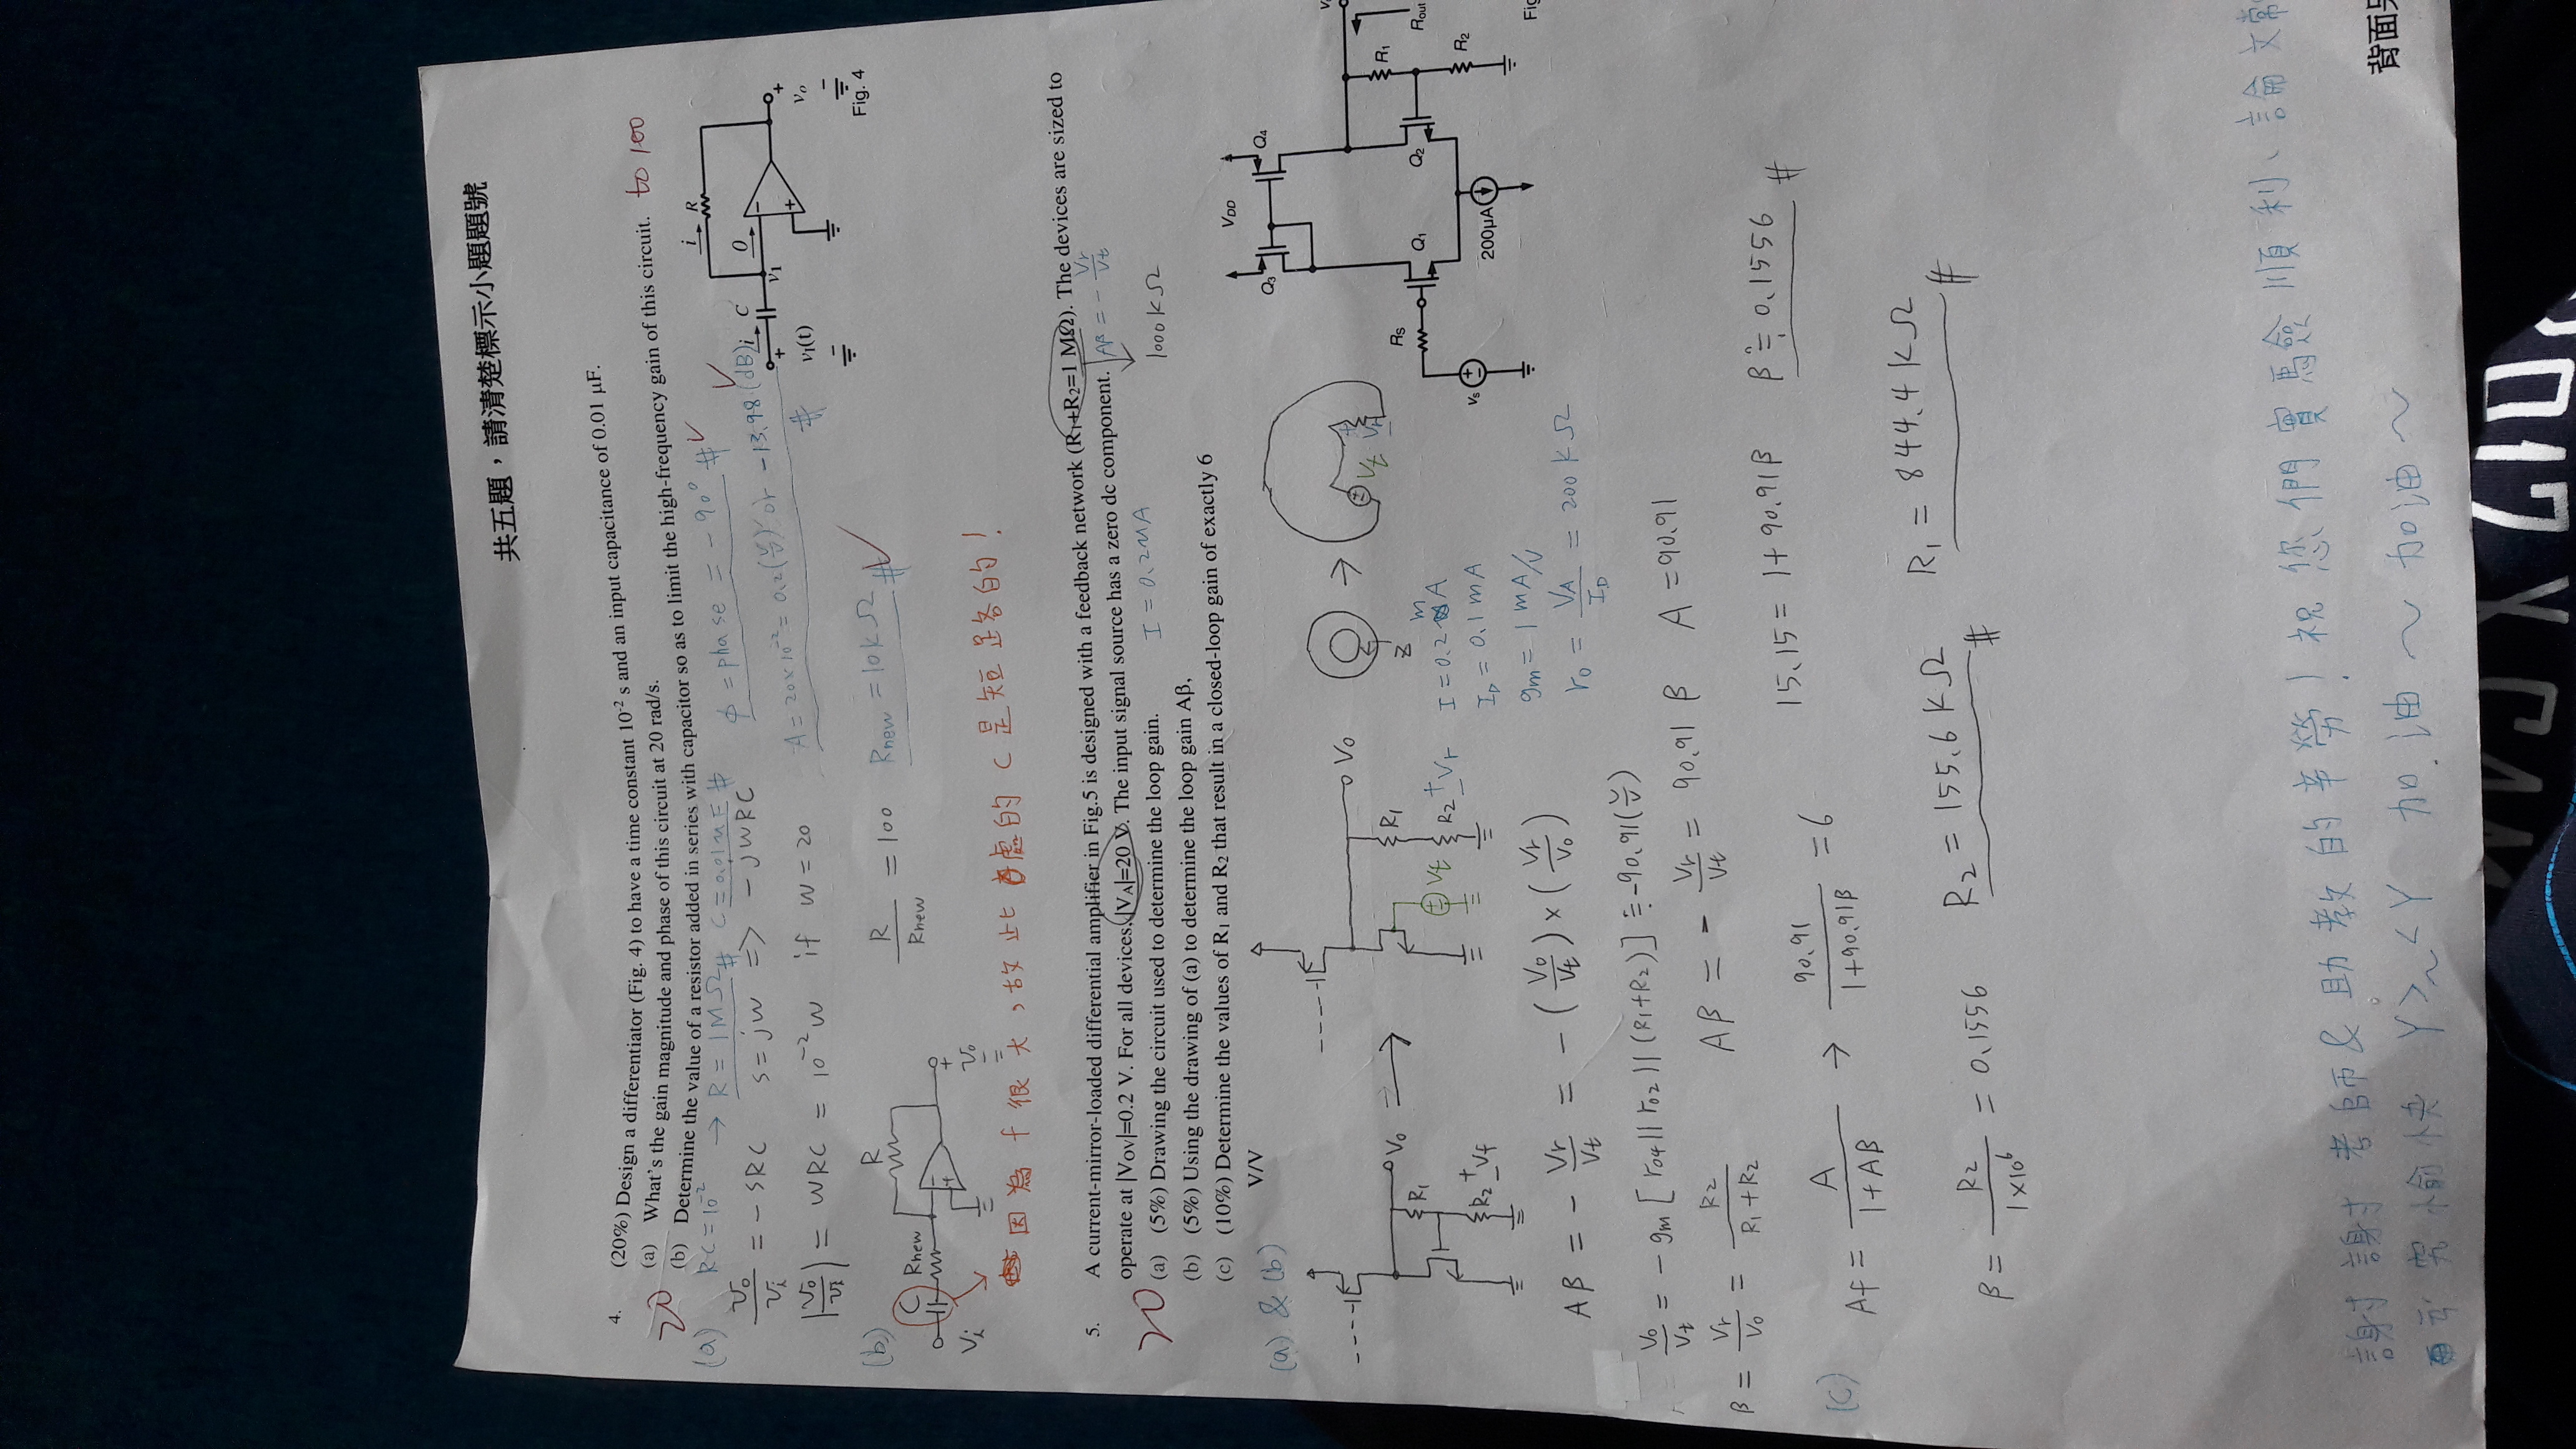 共五題，請清楚標示小題題號
4. (20%) Design a differentiator (Fig. 4) to have a time constant 10⁻² s and an input capacitance of 0.01 μF.
20
(a) What's the gain magnitude and phase of this circuit at 20 rad/s.
(b) Determine the value of a resistor added in series with capacitor so as to limit the high-frequency gain of this circuit. to 100
(a) RC = 10⁻² → R = 1MΩ # C = 0.01μF # φ = phase = -90° # ✓
vo/vi = -SRC s = jw => -jWRC
|vo/vi| = WRC = 10⁻²W if W = 20
A = 20×10⁻² = 0.2 (V/V) or -13.98 (dB) # ✓
i R
i C O
v1
vI(t)
vo
Fig. 4
(b) R
C Rnew
Vi
vo
R/Rnew = 100 Rnew = 10kΩ # ✓
因為 f 很大，故此處的 C 是短路的！
5. A current-mirror-loaded differential amplifier in Fig.5 is designed with a feedback network (R1+R2=1 MΩ). The devices are sized to
operate at |VOV|=0.2 V. For all devices, |VA|=20 V. The input signal source has a zero dc component.
Aβ = - Vr/Vt
1000kΩ
20
(a) (5%) Drawing the circuit used to determine the loop gain.
I = 0.2mA
(b) (5%) Using the drawing of (a) to determine the loop gain Aβ,
(c) (10%) Determine the values of R1 and R2 that result in a closed-loop gain of exactly 6
V/V
(a) & (b)
Vo
R1
R2 + Vf -
Vo
R1
Vt
R2 + Vr -
Z
Vt
Vr
VDD
Q3
Q4
R1
Rs
Q1
Q2
Rout
R2
vs
200μA
I = 0.2 mA
ID = 0.1 mA
gm = 1 mA/V
ro = VA/ID = 200 kΩ
Aβ = - Vr/Vt = -(Vo/Vt)×(Vr/Vo)
Vo/Vt = -gm [ro4||ro2||(R1+R2)] ≒ -90.91 (V/V)
β = Vr/Vo = R2/(R1+R2)
Aβ = - Vr/Vt = 90.91 β A = 90.91
(C) Af = A/(1+Aβ) → 90.91/(1+90.91β) = 6
15.15 = 1+90.91β β ≒ 0.1556 #
β = R2/(1×10⁶) = 0.1556 R2 = 155.6 kΩ # R1 = 844.4 kΩ #
謝謝老師&助教的辛勞！祝您們實驗順利、論文
究愉快 Y>~<Y 加油～加油～
背面